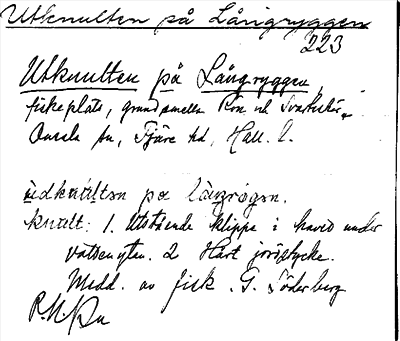 Utknulten på Långryggen
223
Utknulten på Långryggen
fiskeplats, grund mellan Ron och
Onsala sn, Fjäre hd, Hall. l.
udknúlten pa långrøgen.
knult: 1. Utstående klippa i havet under
vattenytan. 2 Hårt jordstycke.
Medd. av fisk. G. Söderberg